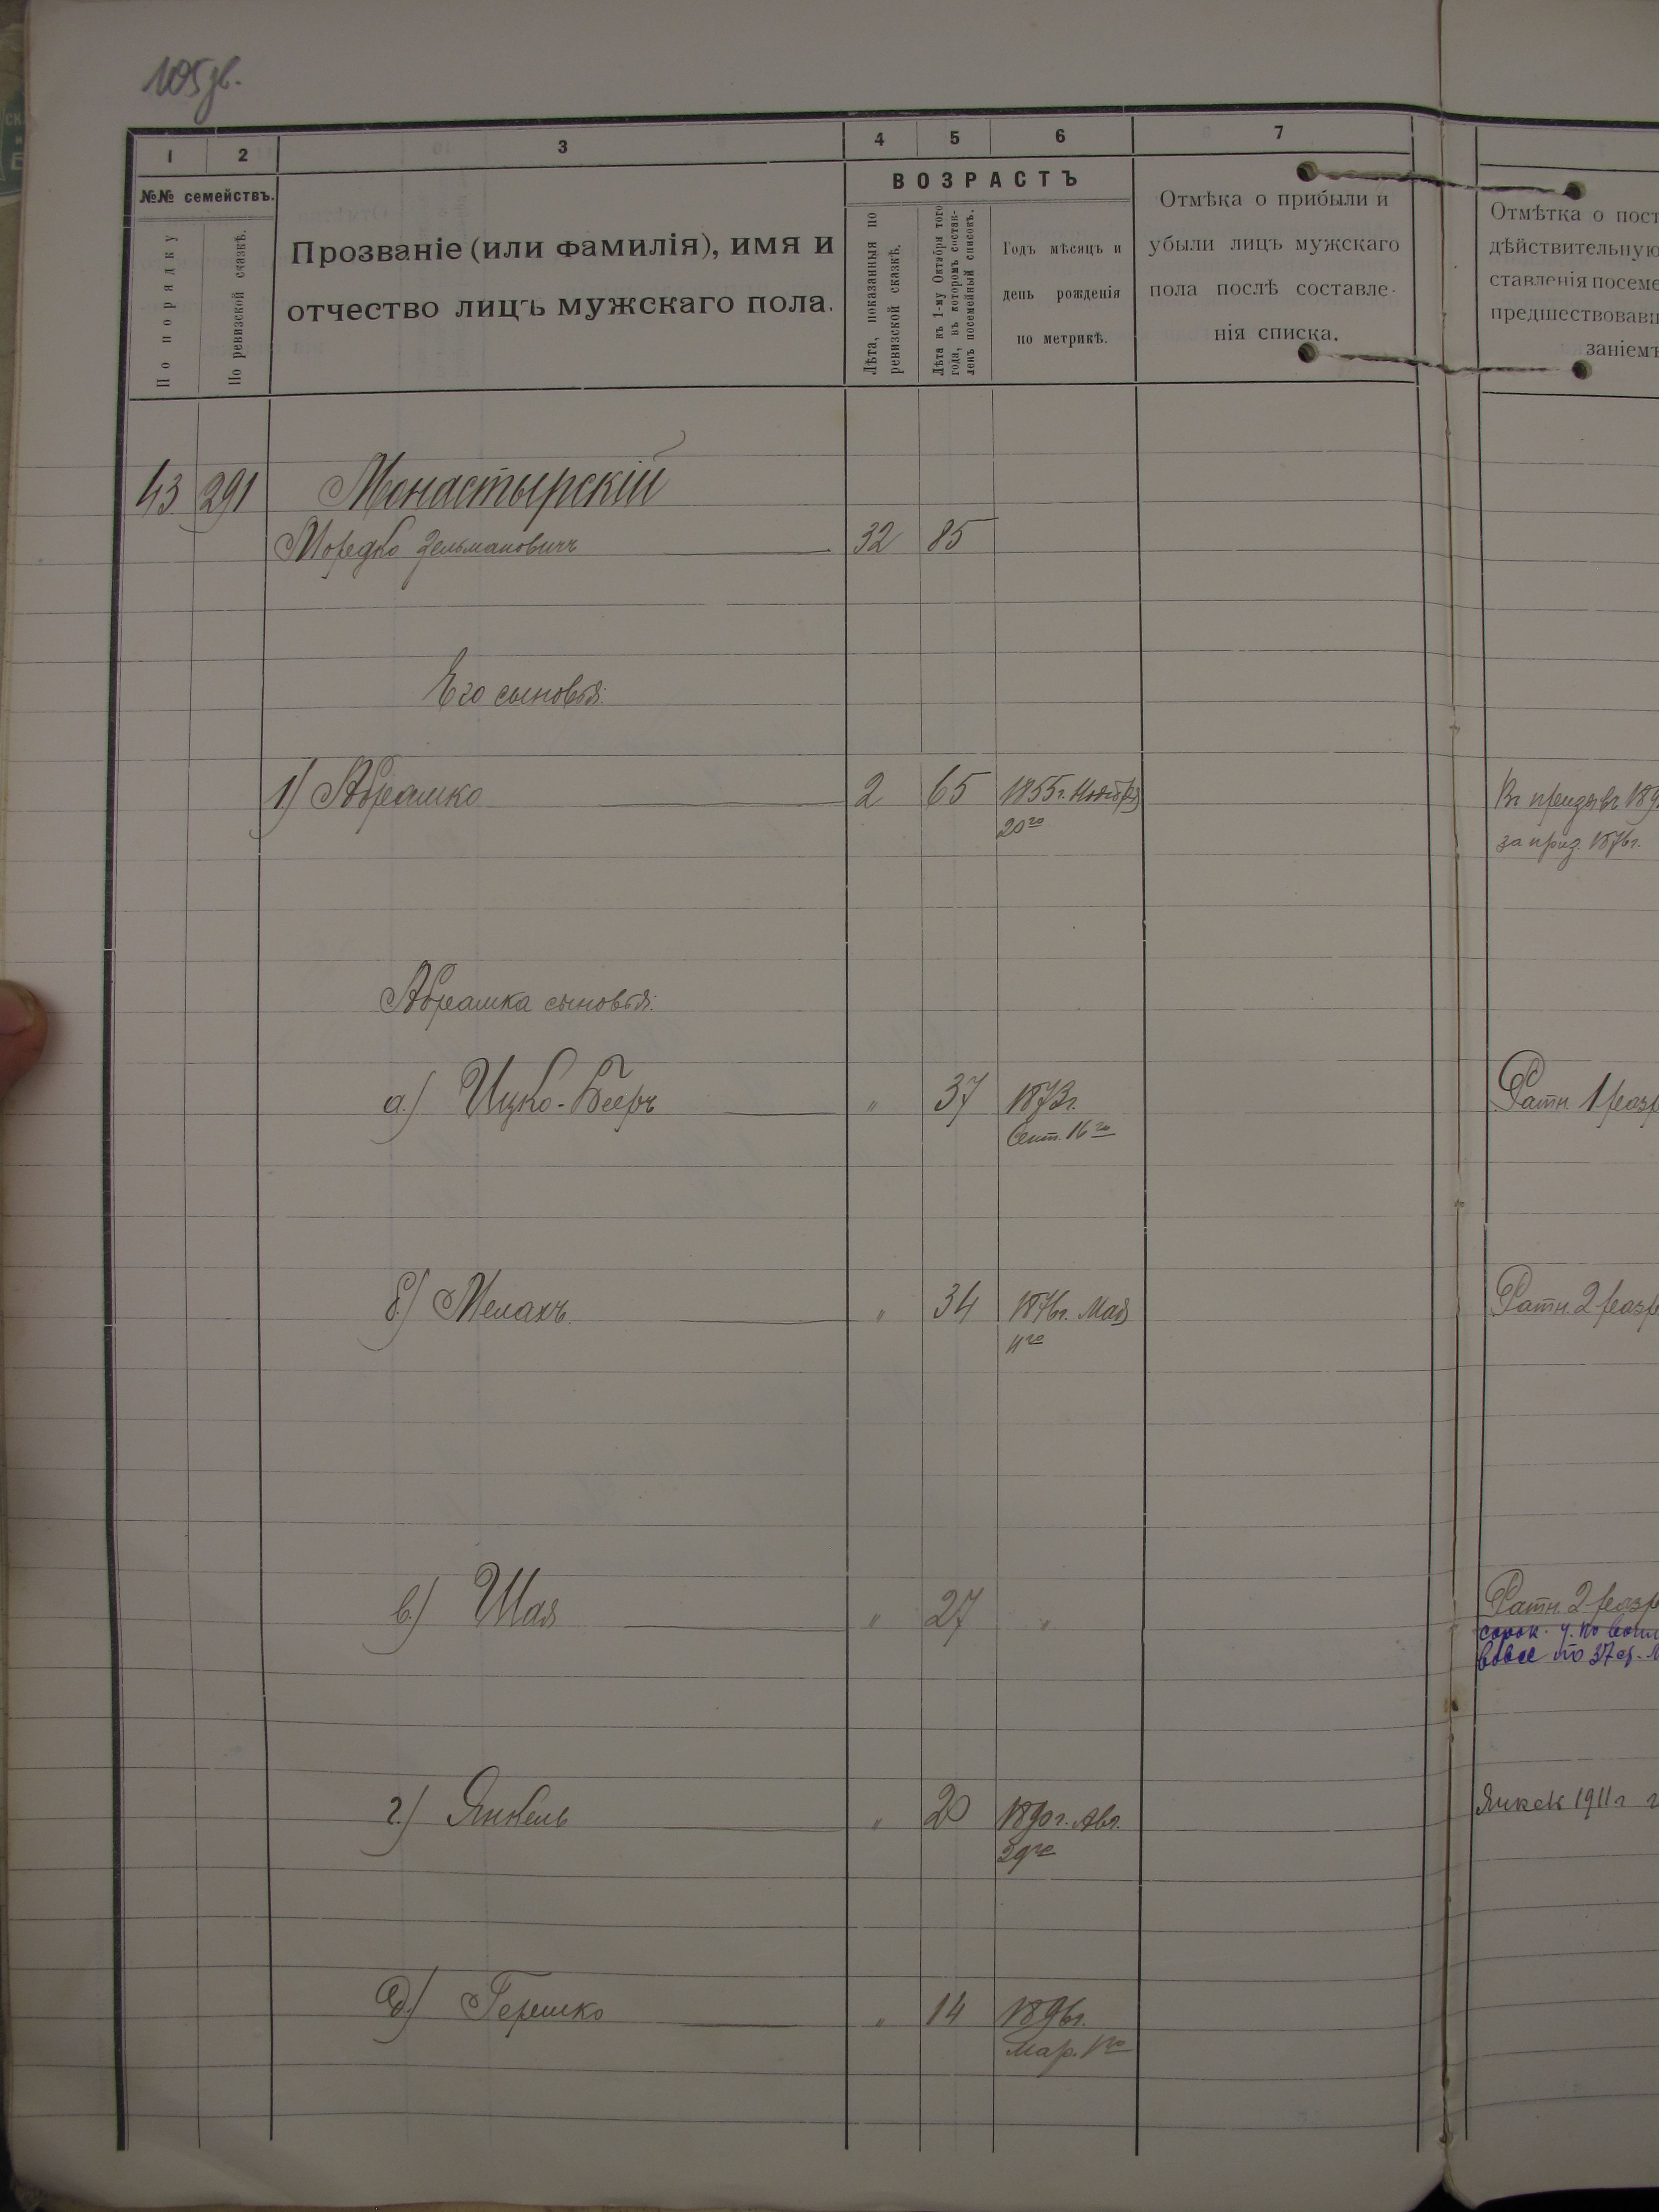 105 зв.
1 2 3 4 5 6 7
№№ семействъ.
По порядку
По ревизской сказкѣ.
Прозваніе (или фамилія), имя и
отчество лицъ мужскаго пола.
ВОЗРАСТЪ
Лѣта, показанныя по
ревизской сказкѣ.
Лѣта къ 1-му Октября того
года, въ которомъ состав-
ленъ посемейный списокъ.
Годъ мѣсяцъ и
день рожденія
по метрикѣ.
Отмѣка о прибыли и
убыли лицъ мужскаго
пола послѣ составле-
нія списка.
Отмѣтка о пост
дѣйствительную
ставленія посеме
предшествовавш
заніемъ
43 291 Монастырскій
Мордко Зельмановичъ 32 85
Его сыновья:
1) Абрашко 2 65 1855г. Ноября
20го
Въ призывъ 189
за приз. 1876г.
Абрашка сыновья:
а) Ицко-Бееръ " 37 1873г.
Сент. 16го
Ратн. 1 разр
б) Мелахъ " 34 1876г. Мая
11го
Ратн. 2 разр
в) Шая " 27 "
Ратн. 2 разр
по 37 ст.
г) Янкель " 20 1890г. Авг.
29го
1911г
д) Гершко " 14 1896г.
Мар. 1го